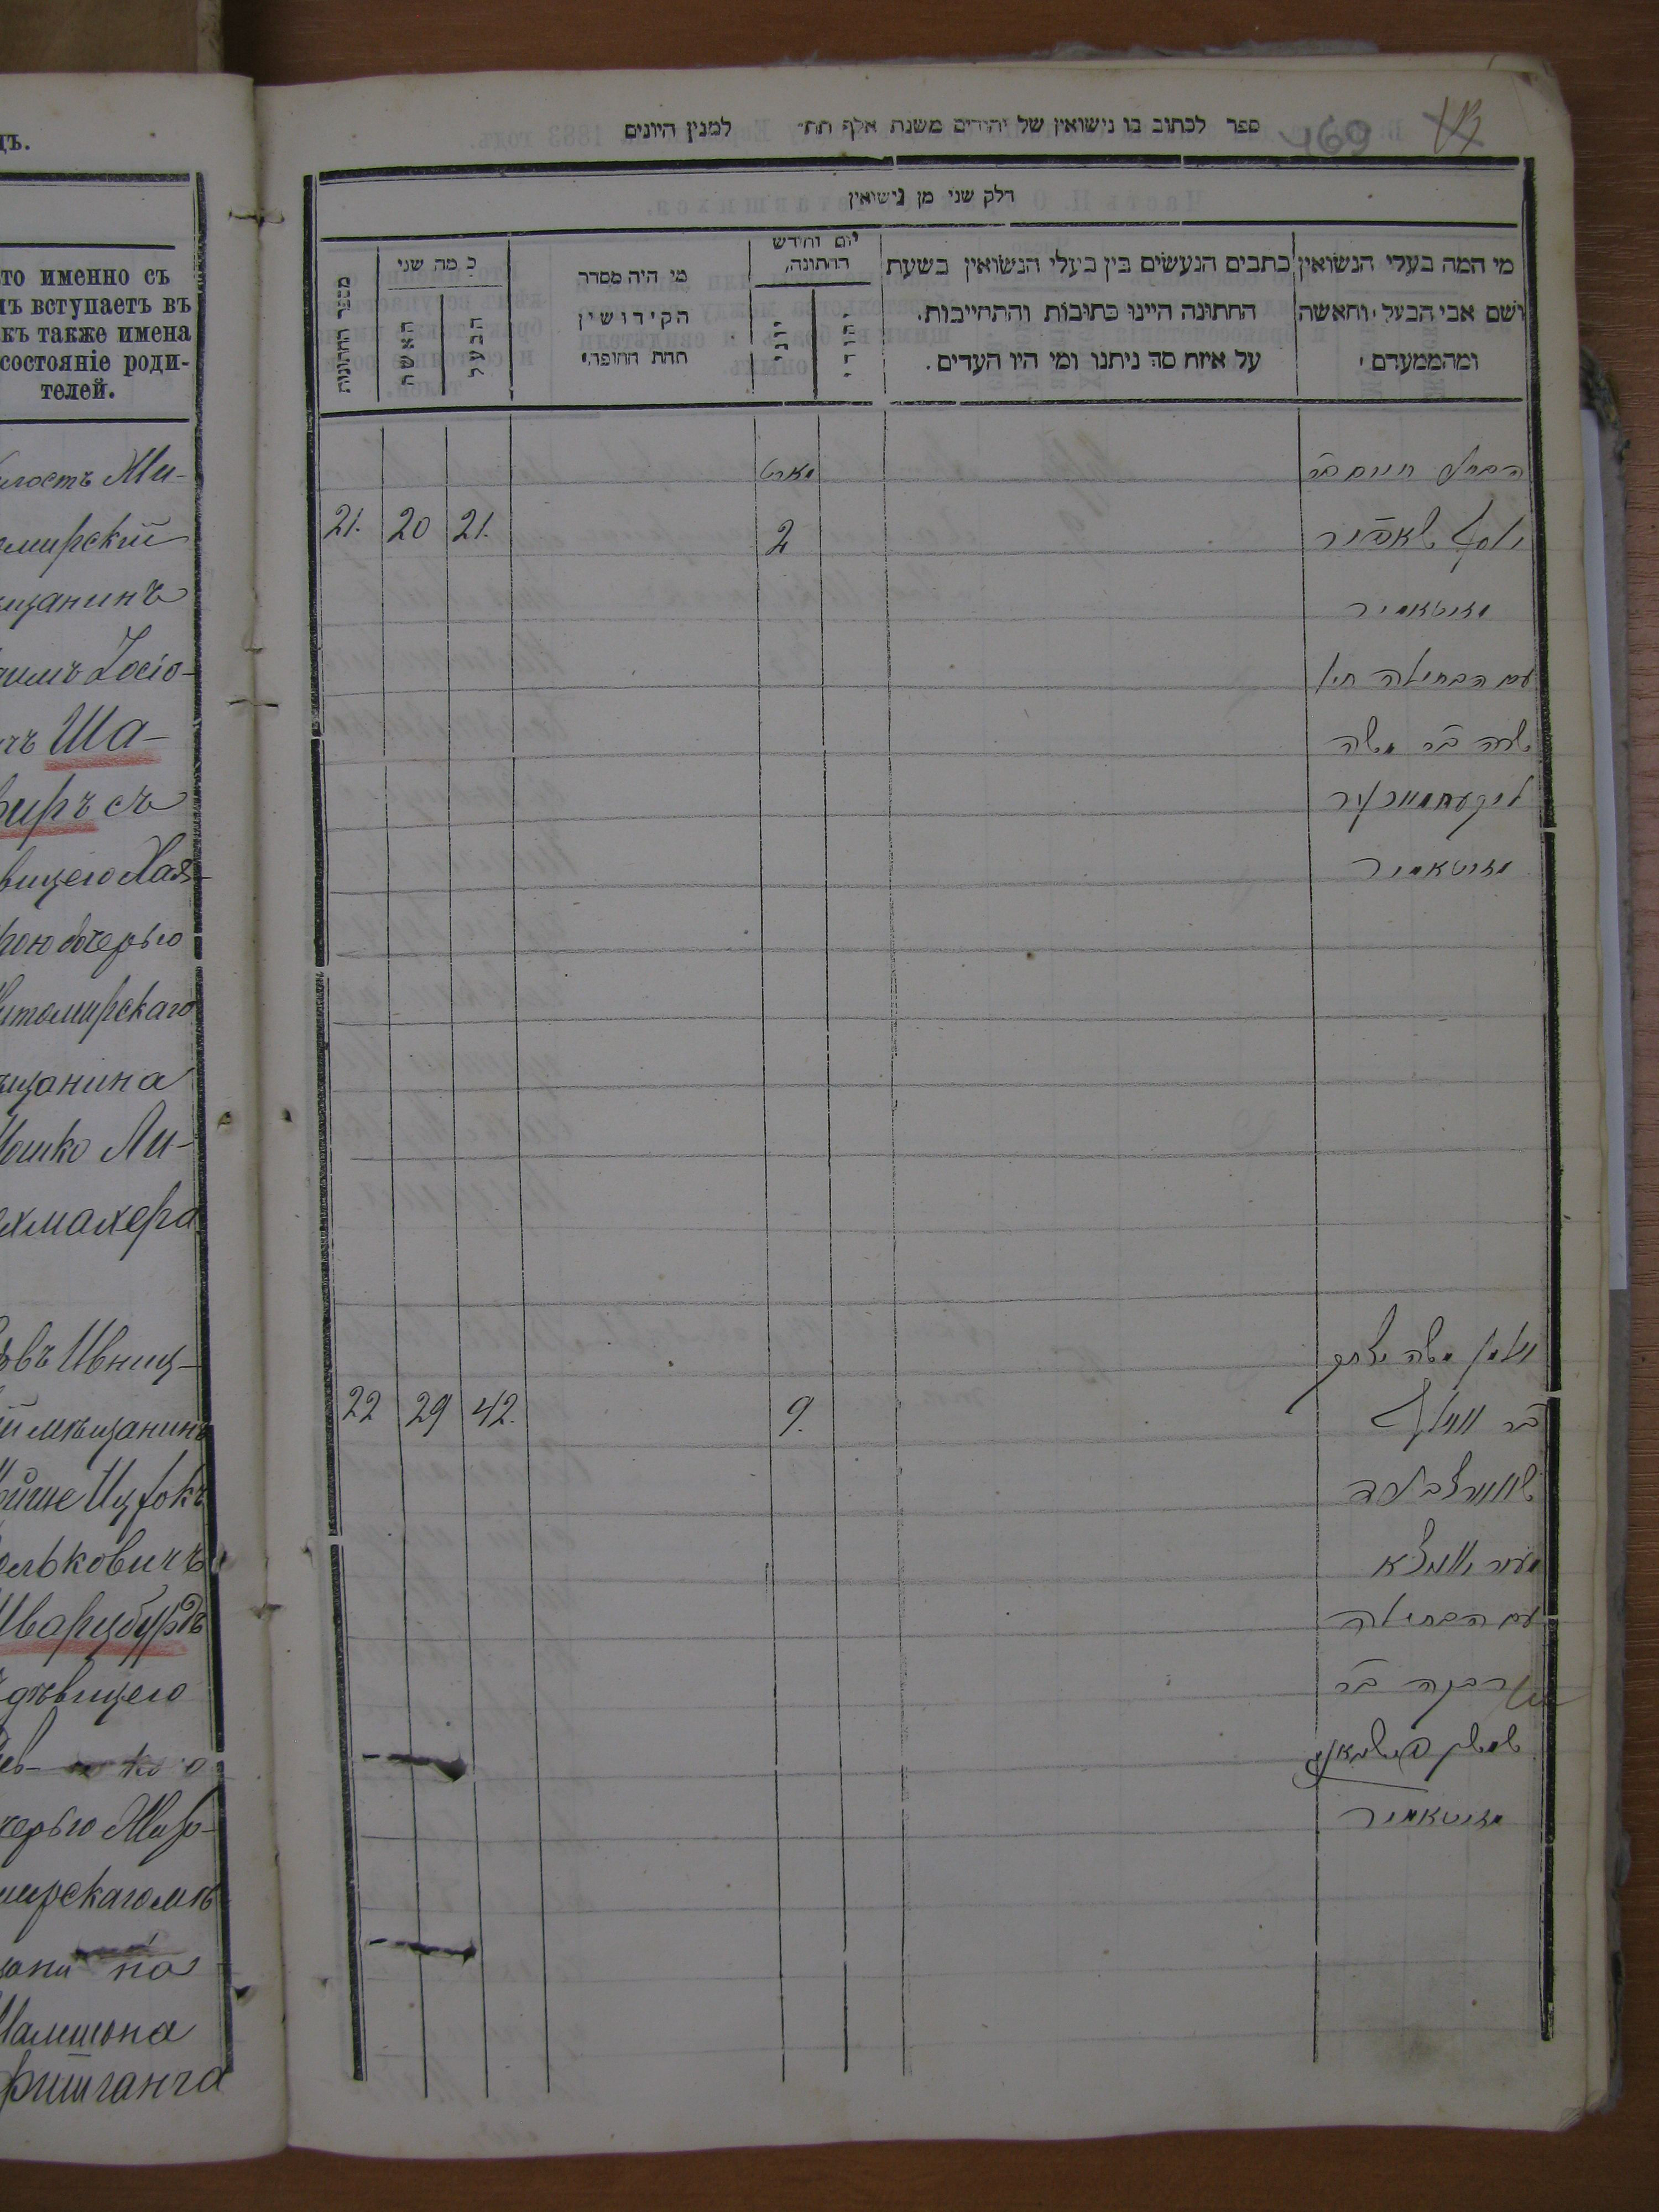 дъ.
то именно съ
мъ вступаетъ въ
къ также имена
состояніе роди-
телей.
лость Жи-
омирскій
ѣщанинъ
аимъ Іосіо-
чъ Ша-
фиръ съ
вицею Хая-
рою дочерью
итомирскаго
ѣщанина
Мошко Ли-
хмахера
Ивниц-
й мѣщанинъ
Мойше Ицхокъ
Вольковичъ
Шварцбурдъ
дѣвицею
черью Жит-
мирскаго мѣ
Шамшона
Фишганга
ספר לכתוב בו נישואין של יהודים משנת אלף תת״ למנין היונים
169
חלק שני מן נישואין
מי המה בעלי הנשואין
ושם אבי הבעל והאשה
ומהמעמדם
כתבים הנעשים בין בעלי הנשואין בשעת
החתונה היינו כתובות והתחייבות.
על איזה סך ניתנו ומי היו העדים.
יום וחודש
החתונה,
יהודי
יוני
מי היה מסדר
הקידושין
תחת החופה
כמה שני
הבעל
האשה
מספר החתונות
הבחור חיים בר
יוסף שאפיר
מזיטאמיר
עם הבתולה חי׳
שרה בר משה
ליכטמאכער
מזיטאמיר
מארט
2
21.
20
21.
אלמן משה יצחק
בר וואלף
שווארצבורד
מעיר איווניצא
עם הבתולה
רבקה בר
שמשון פישגאנג
מזיטאמיר
9.
42.
29
22